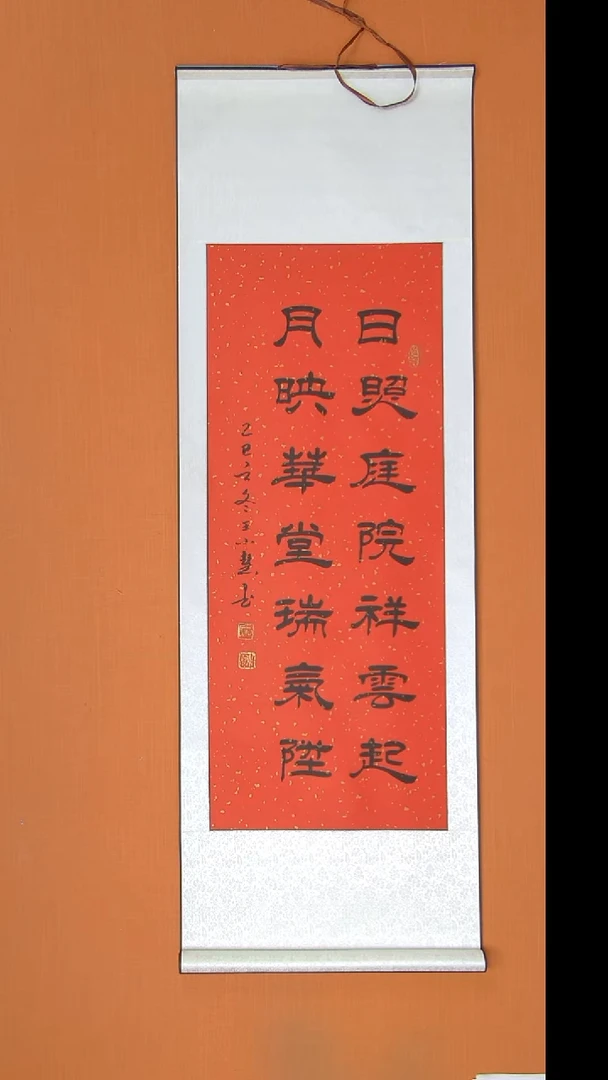 日照庭院祥雲起
月映華堂瑞氣陞
乙巳立冬王小慧书